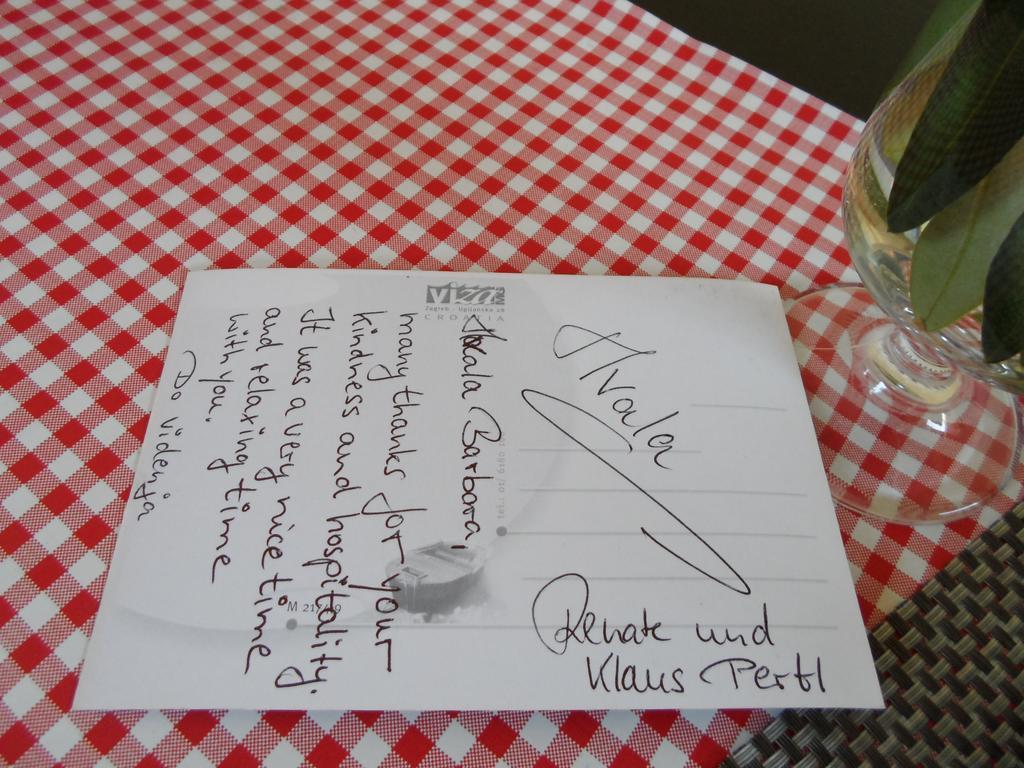 VIZA
Zagreb - Uglianska 28
CROATIA
Hvala Barbara,
many thanks for your
kindness and hospitality.
It was a very nice time
and relaxing time
with you.
Do videnja
M 21/
Hvala
Renate und
Klaus Pertl